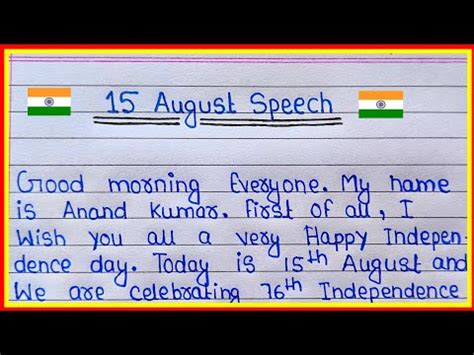 15 August Speech
Good morning Everyone. My name
is Anand Kumar. First of all, I
Wish you all a very Happy Indepen-
dence day. Today is 15th August and
We are celebrating 76th Independence